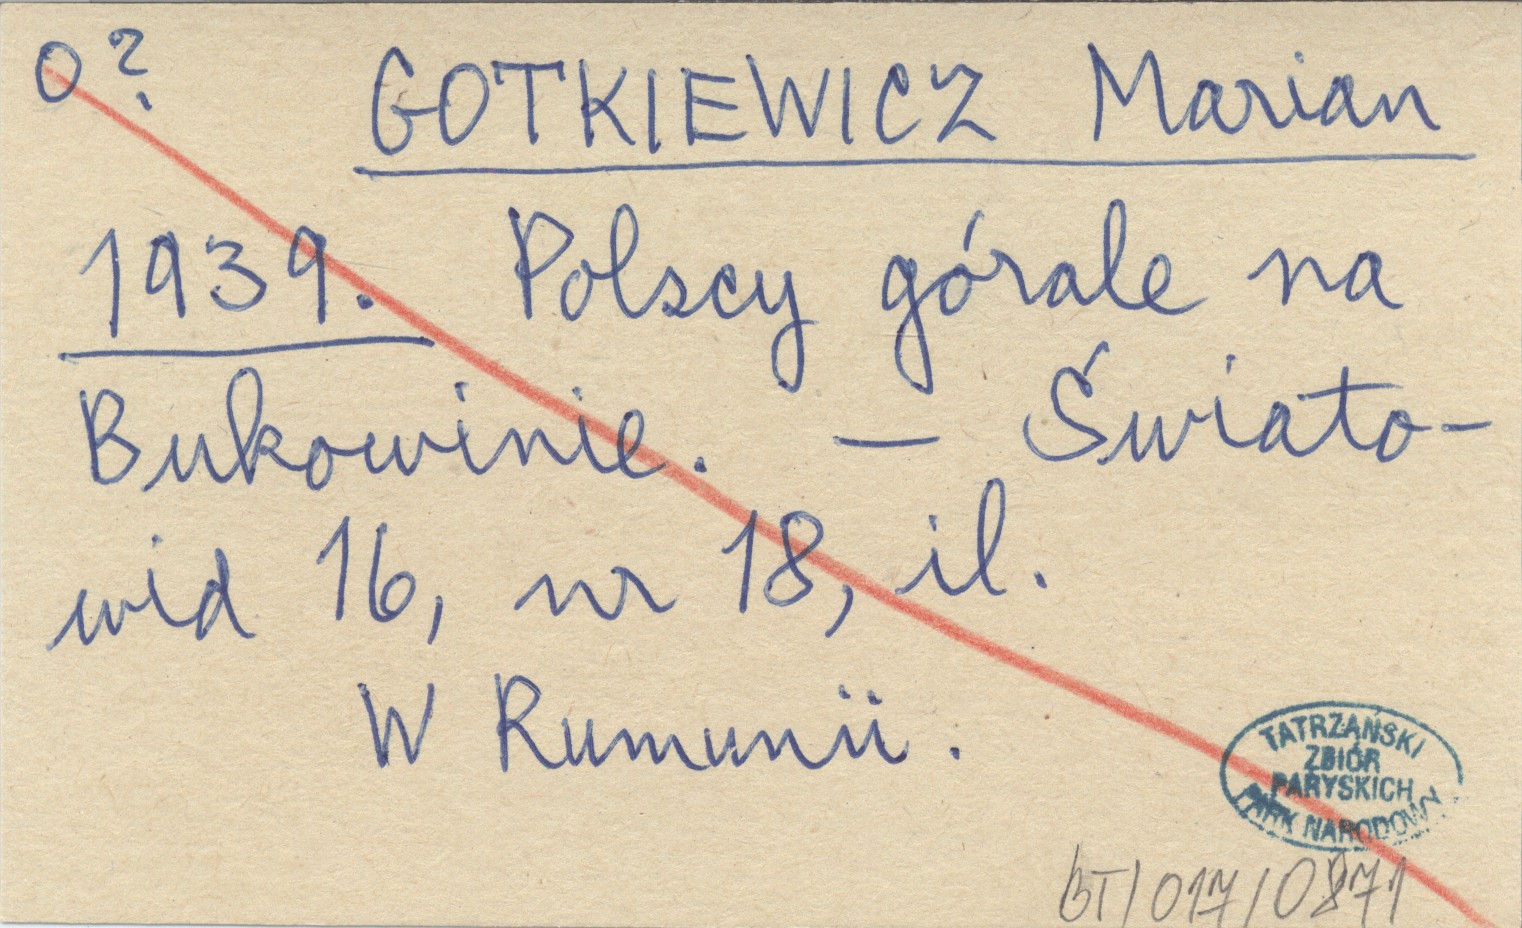 O? GOTKIEWICZ Marian
1939. Polscy górale na
Bukowinie. — Świato-
wid 16, nr 18, il.
W Rumunii.
TATRZAŃSKI
ZBIÓR
PARYSKICH
PARK NARODOWY
BT/017/0871